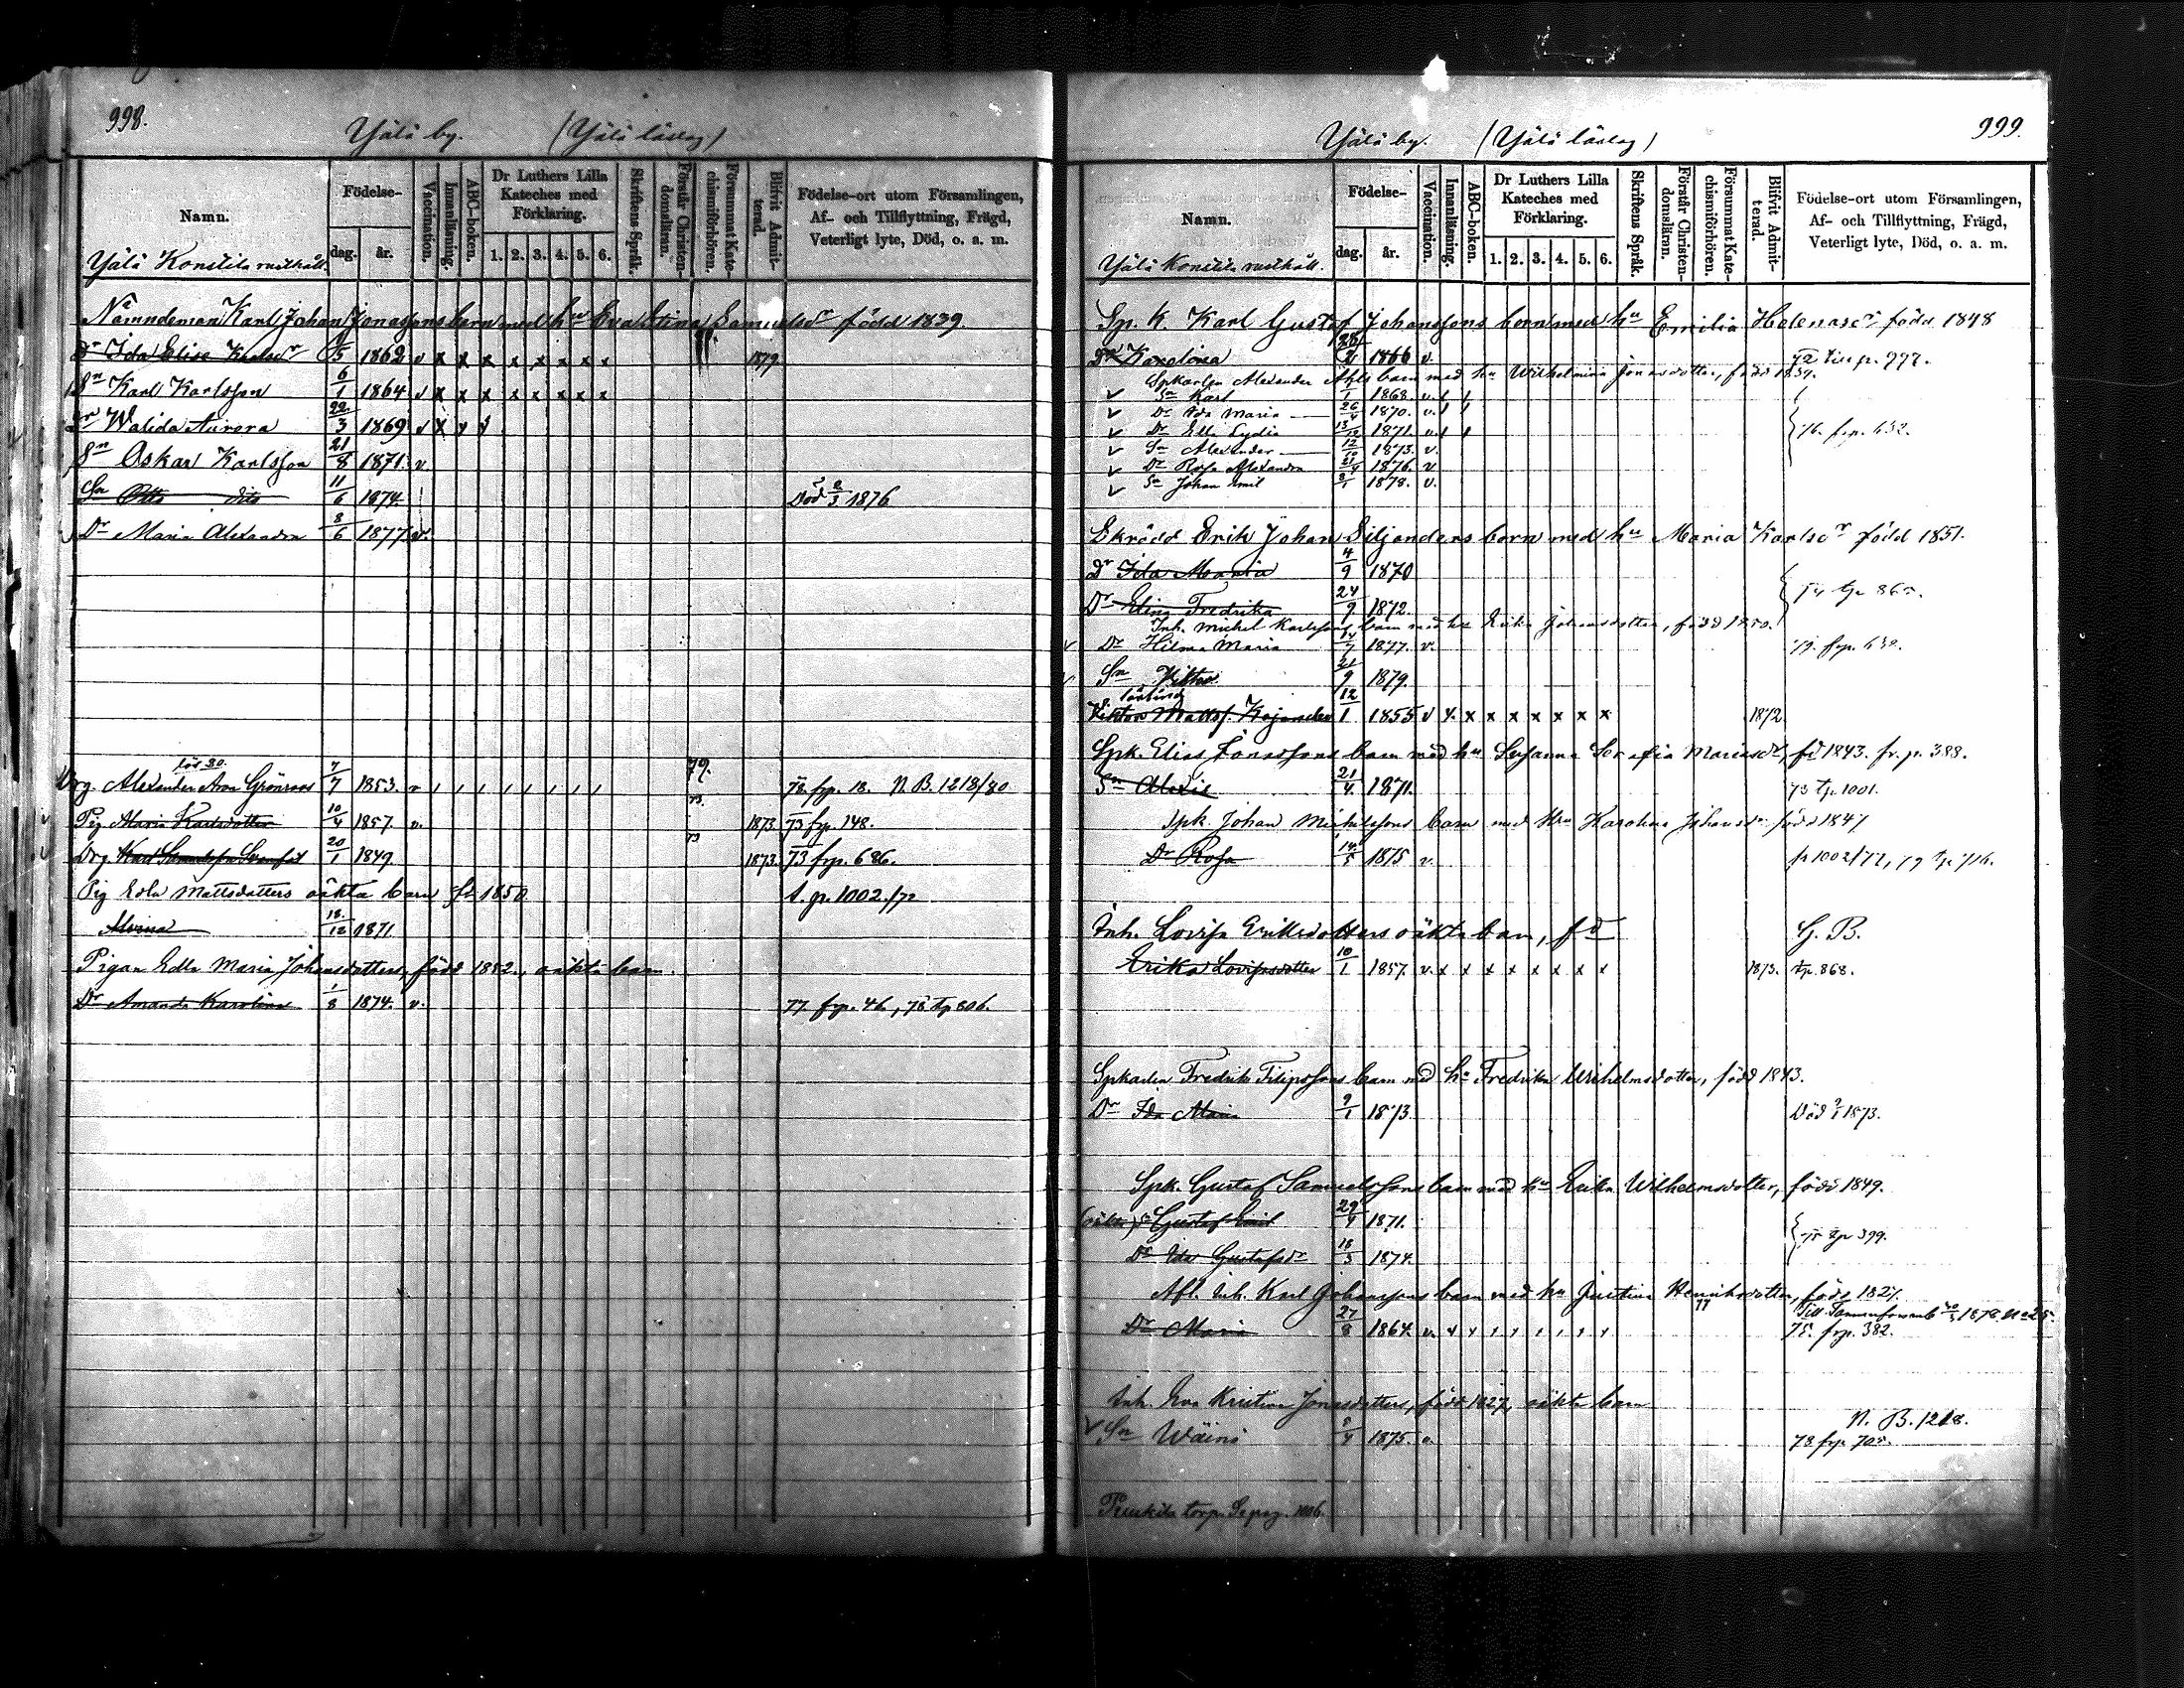 998.
Yälä by. (Yälä läslag)
Namn.
Födelse-
dag.
år.
Vaccination.
Innanläsning.
ABC-boken.
Dr Luthers Lilla
Kateches med
Förklaring.
1. 2. 3. 4. 5. 6.
Skriftens Språk.
Förstår Christen-
domsläran.
Försummat Kate-
chismiförhören.
Blifvit Admit-
terad.
Födelse-ort utom Församlingen,
Af- och Tillflyttning, Frägd,
Veterligt lyte, Död, o. a. m.
Yälä Konstila rusthåll.
Nämndeman Karl Johan Jonassons barn med hu Eva Stina Samuelsdr född 1839.
Dr Ida Elise Karlsdr 5 1862 v x x x x x x x x 1879
Sn Karl Karlsson 6/1 1864 v x x x x x x x x
Dr Walida Aurora 22/3 1869 v x v v
Sn Oskar Karlsson 21/8 1871. v
Sn Otto dito 11/6 1874. Död 1876
Dr Maria Alexandra 8/6 1877 v.
Drg. Alexander Aron Grönroos 7/7 1853. v 79. 78. frp. 18. N. B. 1218/80
Pig Maria Karlsdotter 10/4 1857. v. 73 1873 73 frp. 148.
Drg Karl Samuelsson 20/1 1849 73 1873. 73 frp. 686.
Pig Edla Mattsdotters oäkta barn fd 1850 s. p. 1002/72
Alvina 18/12 1871
Pigan Edla Maria Johansdotters, född 1852., oäkta barn.
Dr Amanda Karolina 1/8 1874. v. 77. frp. 46, 78 tp 806.
999.
Yälä by. (Yälä läslag)
Namn.
Födelse-
dag.
år.
Vaccination.
Innanläsning.
ABC-boken.
Dr Luthers Lilla
Kateches med
Förklaring.
1. 2. 3. 4. 5. 6.
Skriftens Språk.
Förstår Christen-
domsläran.
Försummat Kate-
chismiförhören.
Blifvit Admit-
terad.
Födelse-ort utom Församlingen,
Af- och Tillflyttning, Frägd,
Veterligt lyte, Död, o. a. m.
Yälä Konstila rusthåll.
Sp. K. Karl Gustaf Johanssons barn med hu Emilia Helenasdr född 1848
Dr Karolina 28/2 1866 v. 72 p. 777.
Spkarlen Alexander barn med hu Wilhelmina Jonasdotter, född 1837.
Sn Karl 1868. v.
Dr Ida Maria 26/4 1870. v.
Dr Elli Lydia 13/12 1871. v.
Sn Alexander 12/10 1873. v. 76. frp. 632.
Dr Rosa Alexandra 21/4 1876. v
Sn Johan Emil 1878. v.
Skrädd Erik Johan Siljanders barn med hu Maria Karlsdr född 1851.
Dr Ida Maria 4/9 1870
Dr Elina Fredrika 24/9 1872. 74 tp 865.
Inh. Michel Karlssons barn med hu Erika Johansdotter, född 1850.
Dr Hilma Maria 14/7 1877. v. 79. frp. 632.
Sn Viktor 21/9 1879.
Viktor Mattss. Kojander 12/1 1855 v v. x x x x x x x 1872
Spk. Elias Jonassons barn med hu Susanna Serafia Mariasdr, fd 1843. fr. p. 388.
Sn Alexie 21/4 1871. 73 tp. 1001.
Spk. Johan Michelssons barn med hu Karolina Johansdr född 1847
Dr Rosa 14/5 1875 v. fr 1002/77, 79 tp 716.
Inh. Lovisa Eriksdotters oäkta barn, fd G. B.
Erika Lovisasdotter 10/1 1857. v. x x x x x x x x 1873. tp. 868.
Spkarlen Fredrik Filipssons barn med hu Fredrika Wilhelmsdotter, född 1843.
Dr Ida Maria 9/1 1873. Död 1873.
Spk. Gustaf Samuelssons barn med hu Erika Wilhelmsdotter, född 1849.
(oäkta) Sn Gustaf Emil 29/4 1871.
Dr Ida Gustafsdr 18/3 1874. 75 tp 399.
Afl. Inh. Karl Johanssons barn med hu Justina Henriksdotter, född 1827.
Dr Maria 27/8 1864. v. 77 75. frp. 382.
Inh. Eva Kristina Jonasdotters, född 1827, oäkta barn
Sn Wäinö 8/4 1875. v. N. B. 1218.
78 frp. 705.
Penkila torp. Se pag. 1006